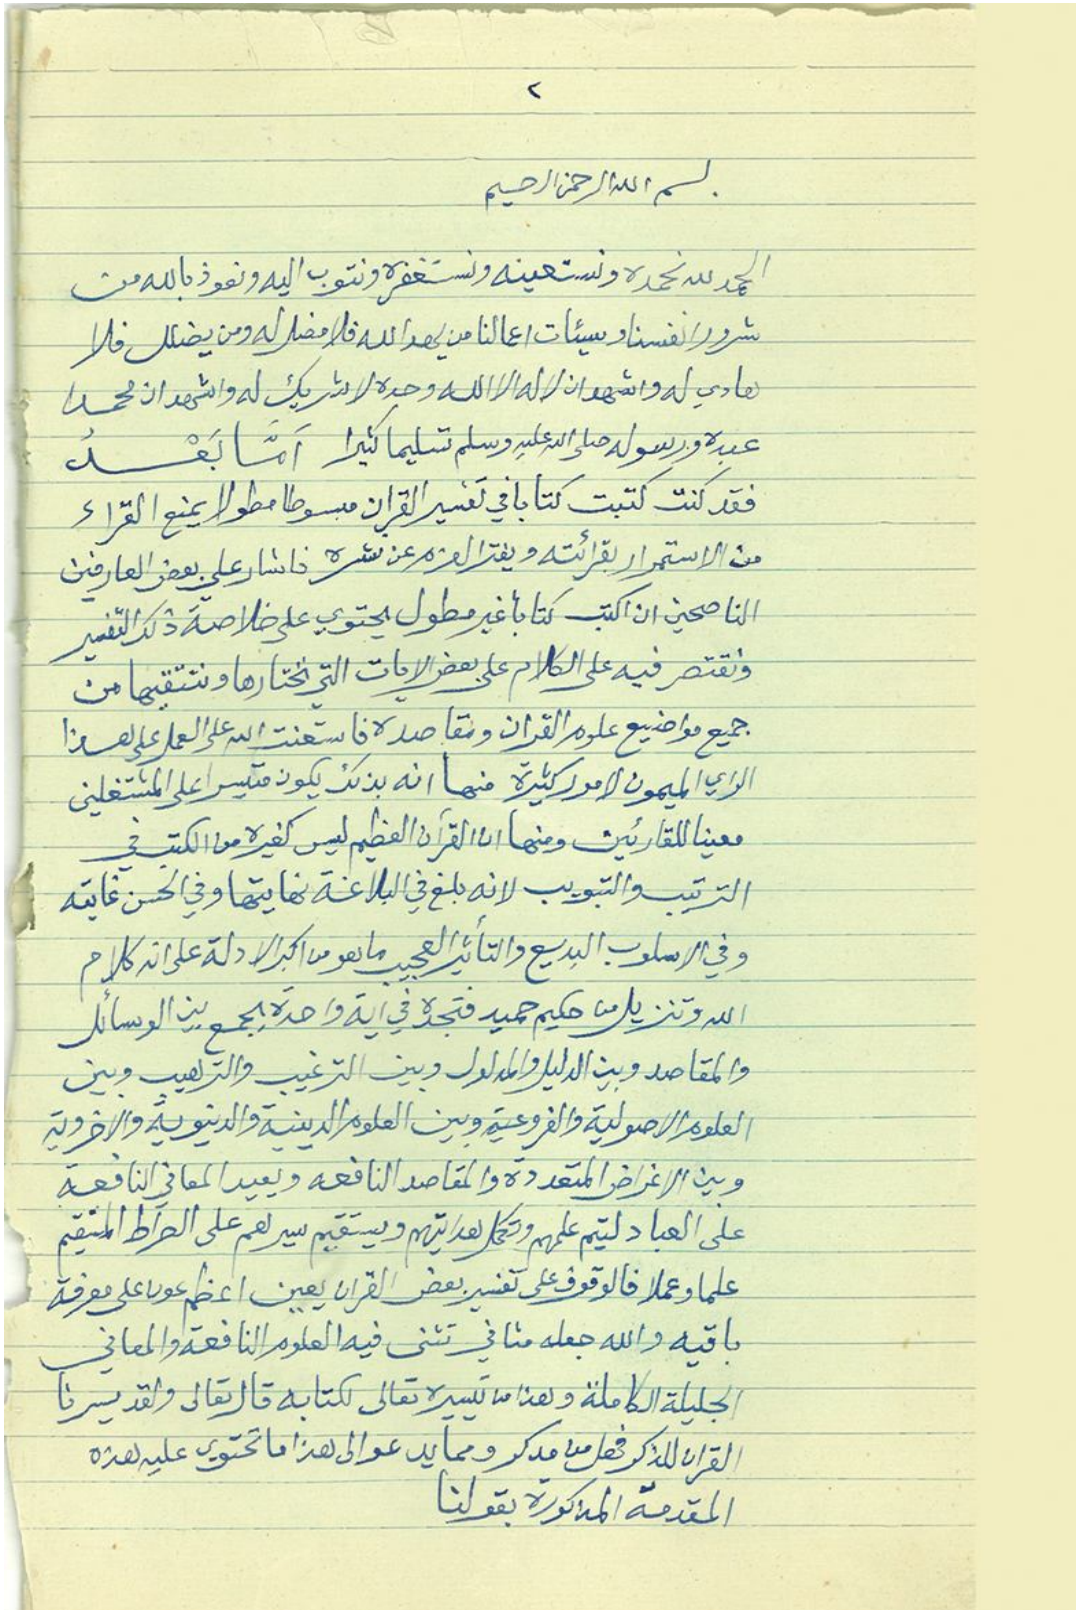 ٢
بسم الله الرحمن الرحيم
الحمد لله نحمده ونستعينه ونستغفره ونتوب اليه ونعوذ بالله من
شرور انفسنا وسيئات اعمالنا من يهد الله فلا مضل له ومن يضلل فلا
هادي له واشهد ان لا اله الا الله وحده لا شريك له واشهد ان محمدا
عبده ورسوله صلى الله عليه وسلم تسليما كثيرا أمَّا بَعْــدُ
فقد كنت كتبت كتابا في تفسير القران مبسوطا مطولا يمنع القراء
من الاستمرار بقرائته ويفتر العزم عن نشره فاشار علي بعض العارفين
الناصحين ان اكتب كتابا غير مطول يحتوي على خلاصة ذلك التفسير
ونقتصر فيه على الكلام على بعض الايات التي نختارها وننتقيها من
جميع مواضيع علوم القران ومقاصده فاستعنت الله على العمل على هذا
الراي الميمون لامور كثيرة منها انه بذلك يكون متيسرا على المشتغلين
معينا للقارئين ومنها ان القرآن العظيم ليس كغيره من الكتب في
الترتيب والتبويب لانه بلغ في البلاغة نهايتها وفي الحسن غايته
وفي الاسلوب البديع والتأثير العجيب ما هو من اكبر الادلة على انه كلام
الله وتنزيل من حكيم حميد فتجده في اية واحدة يجمع بين الوسائل
والمقاصد وبين الدليل والمدلول وبين الترغيب والترهيب وبين
العلوم الاصولية والفروعية وبين العلوم الدينية والدنيوية والاخروية
وبين الاغراض المتعددة والمقاصد النافعه ويعيد المعاني النافعة
على العباد ليتم علمهم وتكمل هدايتهم ويستقيم سيرهم على الصراط المستقيم
علما وعملا فالوقوف على تفسير بعض القران يعين اعظم عون على معرفة
باقيه والله جعله مثاني تثنى فيه العلوم النافعة والمعاني
الجليلة الكاملة وهذا من تيسيره تعالى لكتابه قال تعالى ولقد يسرنا
القران للذكر فهل من مدكر ومما يدعو الى هذا ما تحتوي عليه هذه
المقدمة المذكورة بقولنا